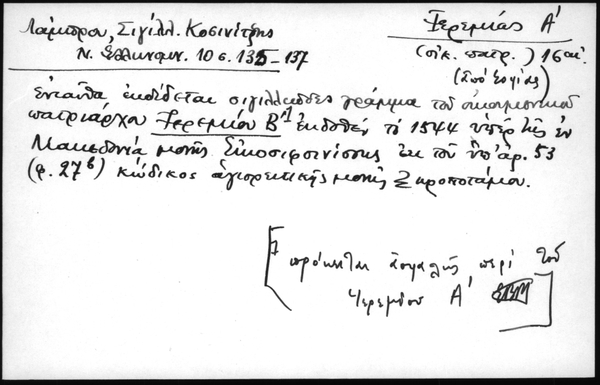 Λάμπρου, Σιγίλλ. Κοσινίτζης
Ν. Ἑλληνομν. 10 σ. 135-137
Ἱερεμίας Α'
(οἰκ. πατρ.) 16 αἰ.
ἐνταῦθα ἐκδίδεται σιγιλλιῶδες γράμμα τοῦ οἰκουμενικοῦ
πατριάρχου Ἱερεμίου Β' ἐκδοθὲν τὸ 1544 ὑπὲρ τῆς ἐν
Μακεδονίᾳ μονῆς Εἰκοσιφοινίσσης ἐκ τοῦ ὑπ' ἀρ. 53
(φ. 27β) κώδικος ἁγιορειτικῆς μονῆς Ξηροποτάμου.
[πρόκειται ἀσφαλῶς περὶ τοῦ
Ἱερεμίου Α' ]